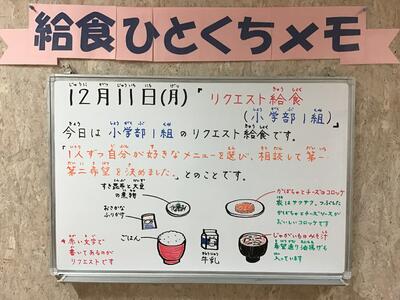 給食ひとくちメモ
12月11日(月)「リクエスト給食
(小学部1組)
今日は小学部1組のリクエスト給食です。
「1人ずつ自分が好きなメニューを選び、相談して第一
第二希望を決めました。」とのことです。
すき昆布と大豆
の煮物
おさかな
ふりかけ
かぼちゃとチーズのコロッケ
衣はサクサク、つぶした
かぼちゃとチーズソースが
おいしいコロッケです
*赤い文字で
書いてあるのが
リクエストです
ごはん
牛乳
じゃがいものみそ汁
希望通り油揚げも
入っています